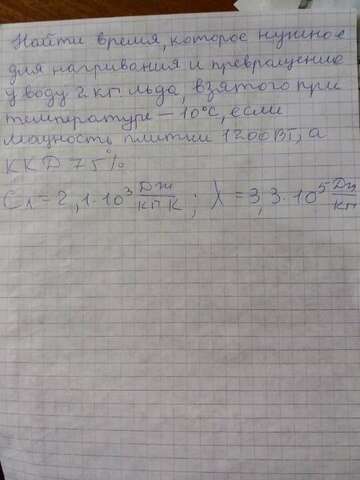 Найти время, которое нужное
для нагривания и превращение
у воду 2 кг льда, взятого при
температуре -10°С, если
мощность плитки 1200 Вт, а
ККД 75%
Сл = 2,1·10³ Дж/кг К ; λ = 3,3·10⁵ Дж/кг